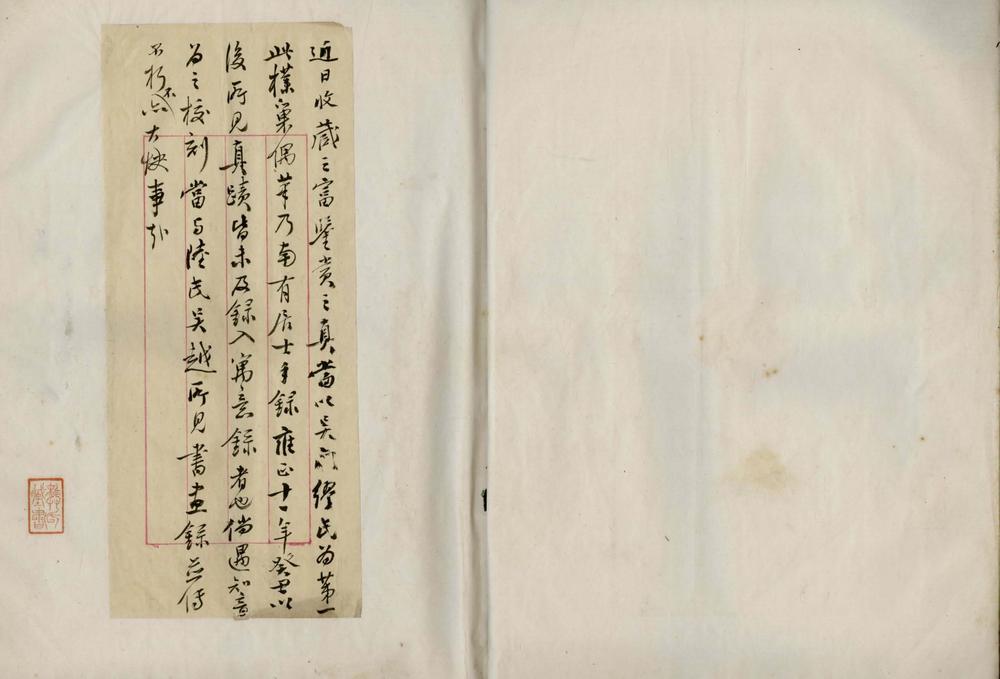 近日收藏之富鑒賞之真當以吳門繆氏為第一
此樸巢偶筆乃南有居士手錄雍正十一年癸丑以
後所見真蹟皆未及錄入寓意錄者也倘遇知音
為之校刻當與陸氏吳越所見書畫錄並傳
不朽不亦大快事耶
藏書